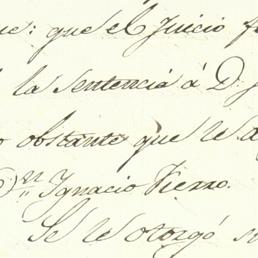 ue: que el Juicio f
la Sentencia á D.
o obstante que le
D.n Ignacio Fierro.
Se le otorgó